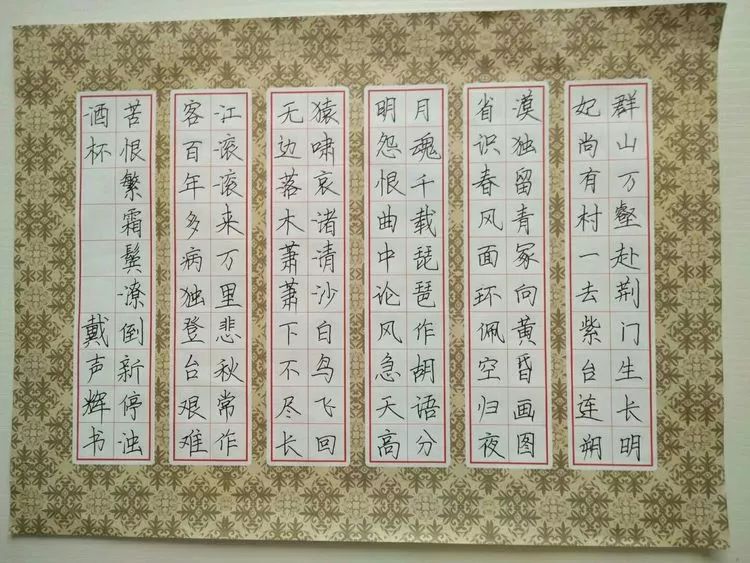 群山万壑赴荆门生长明
妃尚有村一去紫台连朔
漠独留青冢向黄昏画图
省识春风面环佩空归夜
月魂千载琵琶作胡语分
明怨恨曲中论风急天高
猿啸哀诸清沙白鸟飞回
无边落木萧萧下不尽长
江滚滚来万里悲秋常作
客百年多病独登台艰难
苦恨繁霜鬓潦倒新停浊
酒杯 戴声辉书